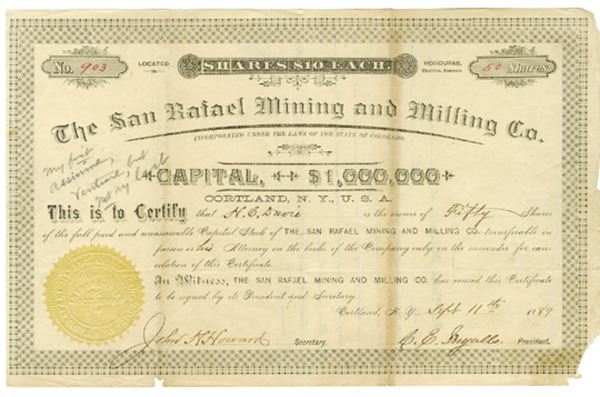 SHARES $10 EACH.
No. 903
LOCATED
IN
HONDURAS,
CENTRAL AMERICA
50 SHARES
The San Rafael Mining and Milling Co.
INCORPORATED UNDER THE LAWS OF THE STATE OF COLORADO.
my first
venture, but
not my last
CAPITAL, $1,000,000
CORTLAND, N.Y., U.S.A.
This is to Certify that H. E. Davis is the owner of Fifty Shares
of the full paid and unassessable Capital Stock of THE SAN RAFAEL MINING AND MILLING CO. transferable in
person or his Attorney on the books of the Company only on the surrender for can-
celation of this Certificate.
In Witness, THE SAN RAFAEL MINING AND MILLING CO. has caused this Certificate
to be signed by its President and Secretary.
Cortland, N.Y. Sept 11th 1889
John H. Howard Secretary. C. E. Ingalls President.